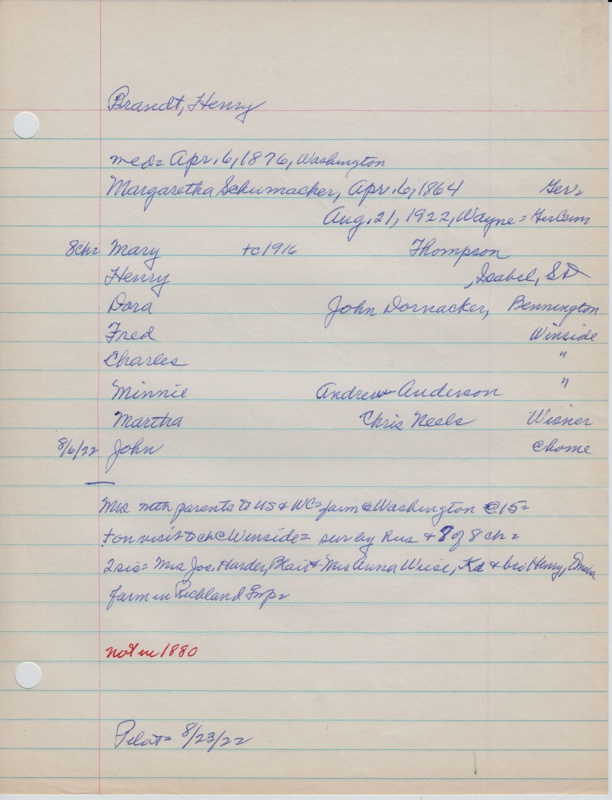 Brandt, Henry
med= Apr. 6, 1876, Washington
Margaretha Schumacker, Apr. 6, 1864 Ger=
Aug. 21, 1922, Wayne= GerCem
8 Chr Mary +c1916 Thompson
Henry , Isabel, SD
Dora John Dornacker, Bennington
Fred Winside
Charles "
Minnie Andrew Anderson "
Martha Chris Neels Wisner
8/6/22 John @home
Mrs with parents to US & WC= farm @ Washington @15=
+ on visit to ch @ Winside= sur by hus & 7 of 8 ch=
2 sis= Mrs Joe Harder, Blair & Mrs Anna Wiese, Kd & bro Henry,
farm in Richland Twp=
not in 1880
Pilot= 8/23/22